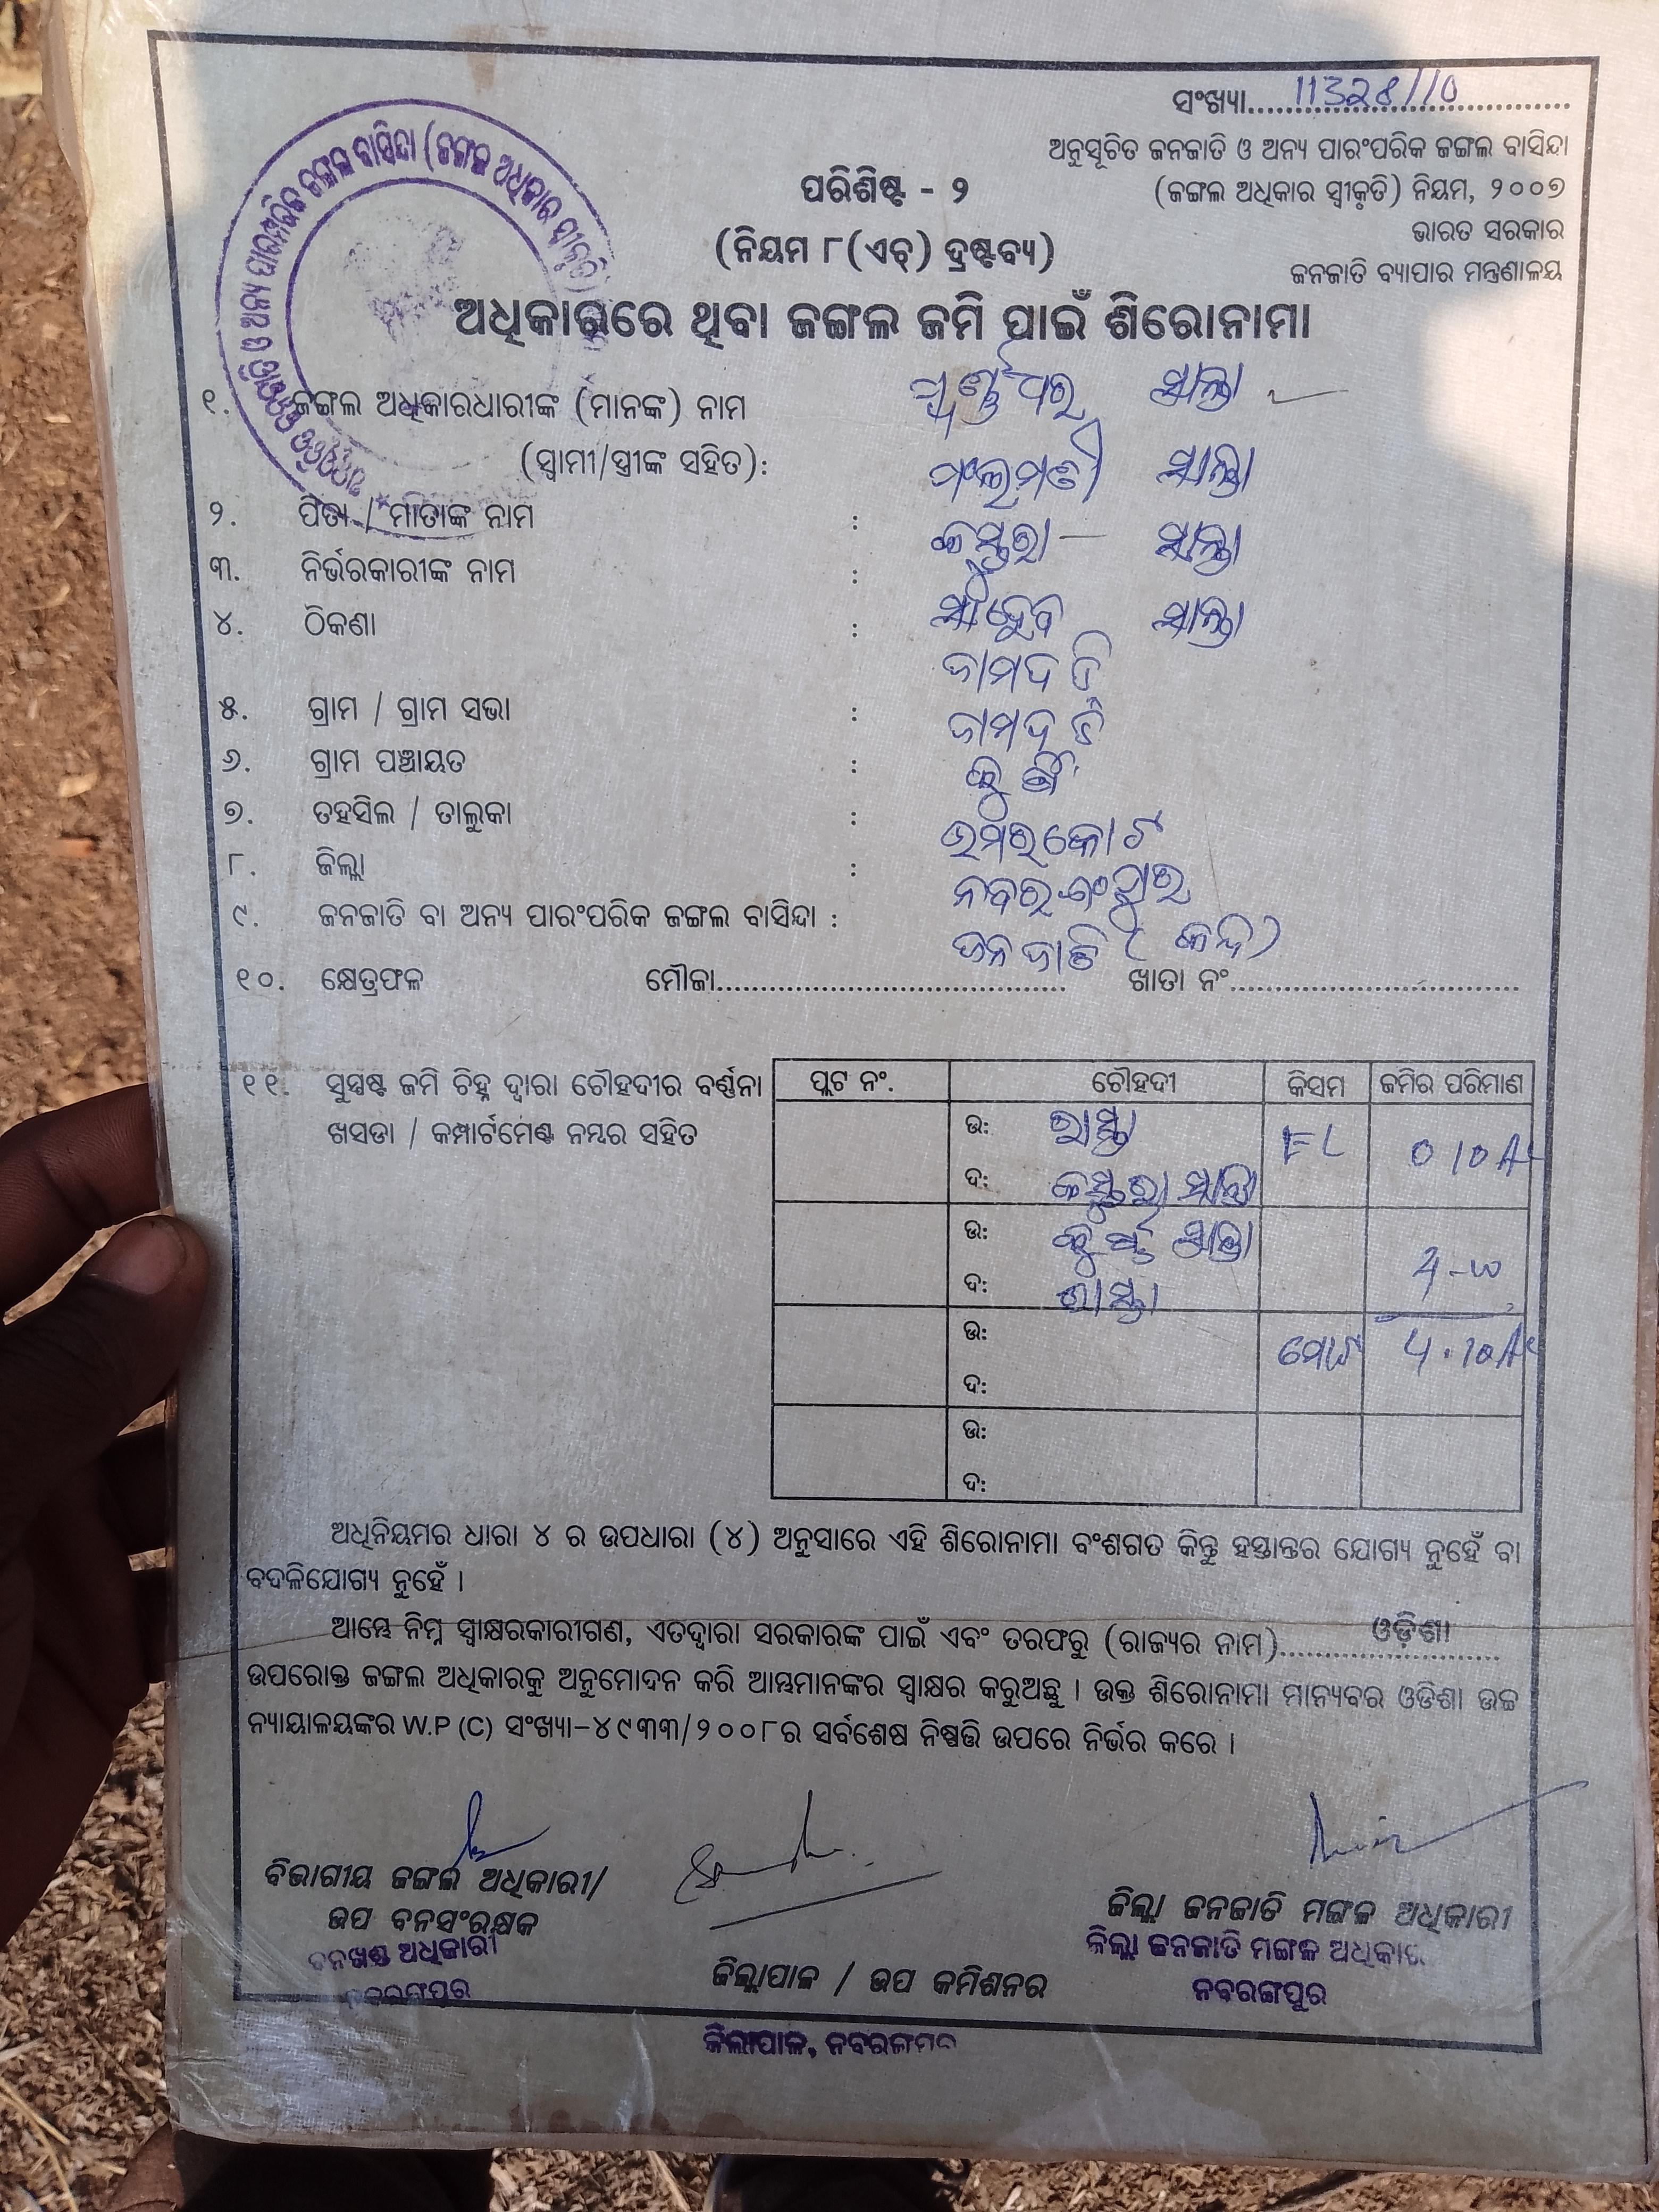 ସଂଖ୍ୟା
ଅନୁସୂଚିତ ଜନଜାତି ଓ ଅନ୍ୟ ପାରଂପରିକ ଜଙ୍ଗଲ ବାସିନ୍ଦା
(ଜଙ୍ଗଲ ଅଧିକାର ସ୍ୱୀକୃତି) ନିୟମ, ୨୦୦୭
ଭାରତ ସରକାର
ଜନଜାତି ବ୍ୟାପାର ମନ୍ତ୍ରଣାଳୟ
ପରିଶିଷ୍ଟ - ୨
(ନିୟମ ୮(ଏଚ୍) ଦ୍ରଷ୍ଟବ୍ୟ)
ଅଧିକାରରେ ଥିବା ଜଙ୍ଗଲ ଜମି ପାଇଁ ଶିରୋନାମା
୧. ଜଙ୍ଗଲ ଅଧିକାରଧାରୀଙ୍କ (ମାନଙ୍କ) ନାମ ସାନ୍ତା
(ସ୍ୱାମୀ/ସ୍ତ୍ରୀଙ୍କ ସହିତ): ସାନ୍ତା
୨. ପିତା / ମାତାଙ୍କ ନାମ : ସାନ୍ତା
୩. ନିର୍ଭରକାରୀଙ୍କ ନାମ : ସାନ୍ତା
୪. ଠିକଣା :
୫. ଗ୍ରାମ / ଗ୍ରାମ ସଭା :
୬. ଗ୍ରାମ ପଞ୍ଚାୟତ :
୭. ତହସିଲ / ତାଲୁକା : ଉମରକୋଟ
୮. ଜିଲ୍ଲା : ନବରଂଗପୁର
୯. ଜନଜାତି ବା ଅନ୍ୟ ପାରଂପରିକ ଜଙ୍ଗଲ ବାସିନ୍ଦା : ଜନଜାତି
୧୦. କ୍ଷେତ୍ରଫଳ ମୌଜା ଖାତା ନଂ
୧୧. ସୁସ୍ପଷ୍ଟ ଜମି ଚିହ୍ନ ଦ୍ୱାରା ଚୌହଦୀର ବର୍ଣ୍ଣନା
ଖସଡା / କମ୍ପାର୍ଟମେଣ୍ଟ ନମ୍ଭର ସହିତ
ପ୍ଲଟ ନଂ. ଚୌହଦୀ କିସମ ଜମିର ପରିମାଣ
ଉ: ରାସ୍ତା
ଦ: ସାନ୍ତା
ଉ: ସାନ୍ତା
ଦ:
ଉ: ମୋଟ 4.10
ଦ:
ଉ:
ଦ:
ଅଧିନିୟମର ଧାରା ୪ ର ଉପଧାରା (୪) ଅନୁସାରେ ଏହି ଶିରୋନାମା ବଂଶଗତ କିନ୍ତୁ ହସ୍ତାନ୍ତର ଯୋଗ୍ୟ ନୁହେଁ ବା
ବଦଳିଯୋଗ୍ୟ ନୁହେଁ ।
ଆମ୍ଭେ ନିମ୍ନ ସ୍ୱାକ୍ଷରକାରୀଗଣ, ଏତଦ୍ୱାରା ସରକାରଙ୍କ ପାଇଁ ଏବଂ ତରଫରୁ (ରାଜ୍ୟର ନାମ) ଓଡ଼ିଶା
ଉପରୋକ୍ତ ଜଙ୍ଗଲ ଅଧିକାରକୁ ଅନୁମୋଦନ କରି ଆମ୍ଭମାନଙ୍କର ସ୍ୱାକ୍ଷର କରୁଅଛୁ । ଉକ୍ତ ଶିରୋନାମା ମାନ୍ୟବର ଓଡିଶା ଉଚ୍ଚ
ନ୍ୟାୟାଳୟଙ୍କର W.P (C) ସଂଖ୍ୟା-୪୯୩୩/୨୦୦୮ର ସର୍ବଶେଷ ନିଷ୍ପତ୍ତି ଉପରେ ନିର୍ଭର କରେ ।
ବିଭାଗୀୟ ଜଙ୍ଗଲ ଅଧିକାରୀ/
ଉପ ବନସଂରକ୍ଷକ
ବନଖଣ୍ଡ ଅଧିକାରୀ
ନବରଙ୍ଗପୁର
ଜିଲ୍ଲାପାଳ / ଉପ କମିଶନର
ଜିଲାପାଳ, ନବରଙ୍ଗପୁର
ଜିଲ୍ଲା ଜନଜାତି ମଙ୍ଗଳ ଅଧିକାରୀ
ଜିଲ୍ଲା ଜନଜାତି ମଙ୍ଗଳ ଅଧିକାରୀ
ନବରଙ୍ଗପୁର